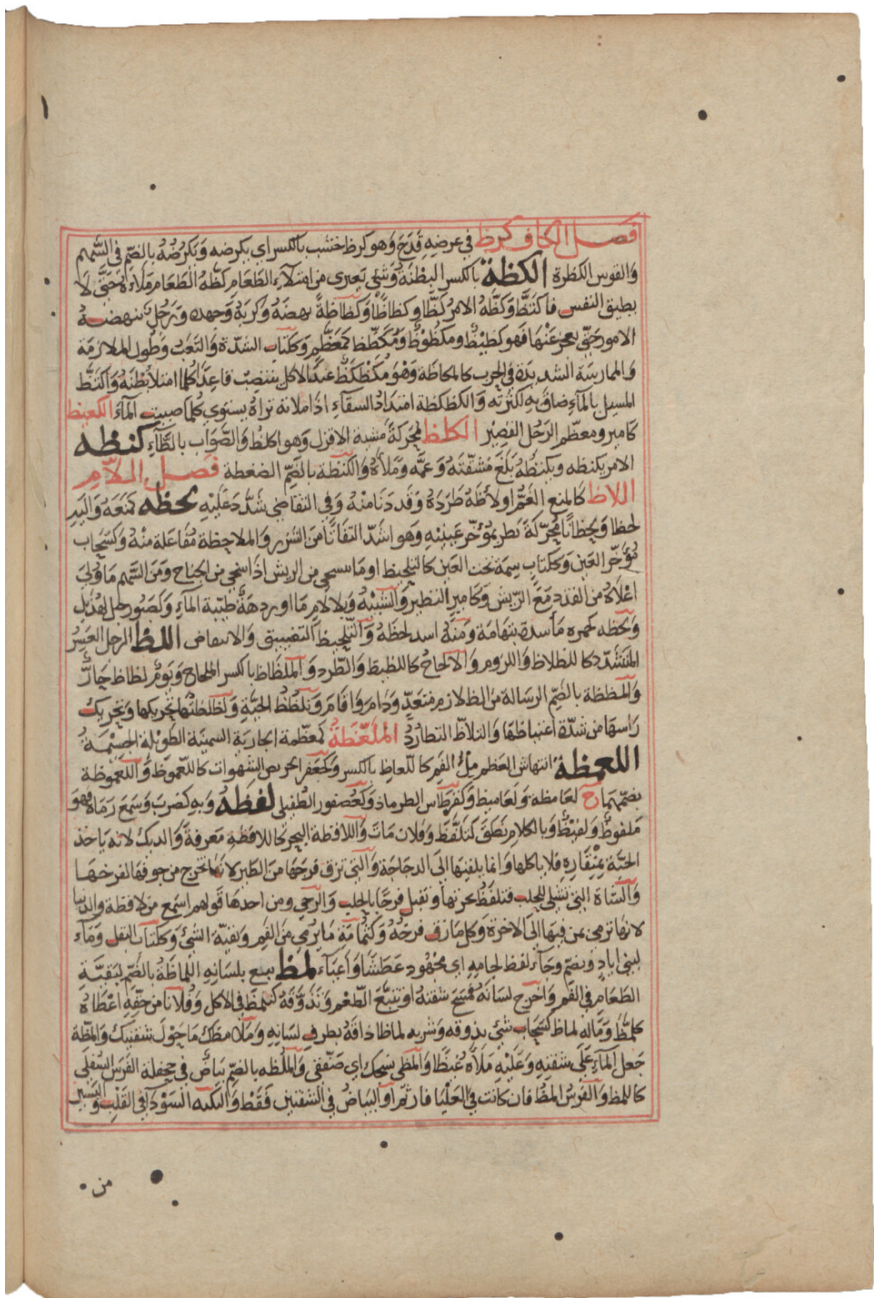 فصل الكاف كرظ في عرضه قدح وهو كرظ خشب بالكسر اي بكرضه وبكرضه بالضم في السهم
والقوس الكظرة الكظة بالكسر البطنة وشئ يعترى من امتلاء الطعام كظه الطعام ملاه حتى لا
يطيق النفس فاكتظ وكظه الامر كظا وكظاظا وكظاظة بهضه وكربه وجهده ورجل كظ تبهضه
الامور حتى يعجز عنها فهو كظيظ ومكظوظ ومكظظ كمعظم وككتاب الشدة والتعب وطول الملازمة
والممارسة الشديدة في الحرب كالمكاظة وهو مكظكظ عند الاكل ينتصب قاعدا كلما امتلا بطنه واكتظ
المسيل بالماء ضاق به لكثرته والكظكظة امتداد السقاء اذا ملاته تراه يستوي كلما صببت الماء الكعيظ
كامير ومعظم الرجل القصير الكلظ محركة مشية الاقزل وهو اكلظ والصواب بالطاء كنظه
الامر يكنظه ويكنظه بلغ مشقته وغمه وملاه والكنظة بالضم الضغطة فصل اللام
اللاظ كالمنع الغم ولاظه طرده وقد دنا منه وفي التقاضي شدد عليه لحظه كمنعه واليه
لحظا ولحظانا محركة نظر بمؤخر عينيه وهو اشد التفاتا من الشزر والملاحظة مفاعلة منه وكسحاب
مؤخر العين وككتاب سمة تحت العين كالتلحيظ او ما ينسحى من الريش اذا سحي من الجناح ومن السهم ما ولي
اعلاه من القذذ مع الريش وكامير النظير والشبيه وبلا لام ما او ردهة طيبة الماء وكصبور جبل لهذيل
ولحظه كحمزه ماسدة بتهامة ومنه اسد لحظه والتلحيظ التضييق والانتفاض اللظ الرجل العسر
المتشدد كاللظلاظ واللزوم والالحاح كاللظيظ والطرد والملظاظ بالكسر الملحاح ويوم لظلاظ حار
والملظة بالضم الرسالة من الظ لازم متعد ودام واقام وتلظظ الحية ولظلظتها تحريكها وتحريك
راسها من شدة اغتياظها والتلاظ التطارد الملعظة كمعظمة الجارية السمينة الطويلة الجسيمة
اللعمظة انتهاش العظم ملء الفم كاللعماظ بالكسر وكجعفر الحريص الشهوان كاللعموظ واللعموظة
بضمهما ج لعامظة ولعاميظ وكقرطاس الطرماذ وكعصفور الطفيلي لفظه وبه كضرب وسمع رماه فهو
ملفوظ ولفيظ وبالكلام نطق كتلفظ وفلان مات واللافظة البحر كلافظة معرفة والديك لانه ياخذ
الحبة بمنقاره فلا ياكلها وانما يلقيها الى الدجاجة والتي تزق فرخها من الطير لانها تخرج من جوفها لفرخها
والشاة التي تشلى للحلب فتلفظ بجرتها وتقبل فرحا بالحلب والرحى ومن احدها قولهم اسمح من لافظة والدنيا
لانها ترمى بمن فيها الى الاخرة وكل ما زق فرخه وكثمامة ما يرمى من الفم وبقية الشئ وككتاب البقل وماء
لبني اياد ويضم وجاء وقد لفظ لجامه اي مجهود عطشا واعياء لمظ تتبع بلسانه اللماظة بالضم لبقية
الطعام في الفم واخرج لسانه فمسح شفته او تتبع الطعم وتذوقه كتلمظ في الاكل وفلانا من حقه اعطاه
كلمظ وماله لماظ كسحاب شئ يذوقه وشربه لماظا ذاقه بطرف لسانه وملامظك ما حول شفتيك والمظه
جعل الماء على شفتيه وعليه ملاه غيظا والمظي نسجك اي صفقي واللمظه بالضم بياض في جحفلة الفرس السفلى
كاللمظ والفرس المظ فان كانت في العليا فارثم او البياض في الشفتين فقط والنكتة السوداء في القلب واليسير
من